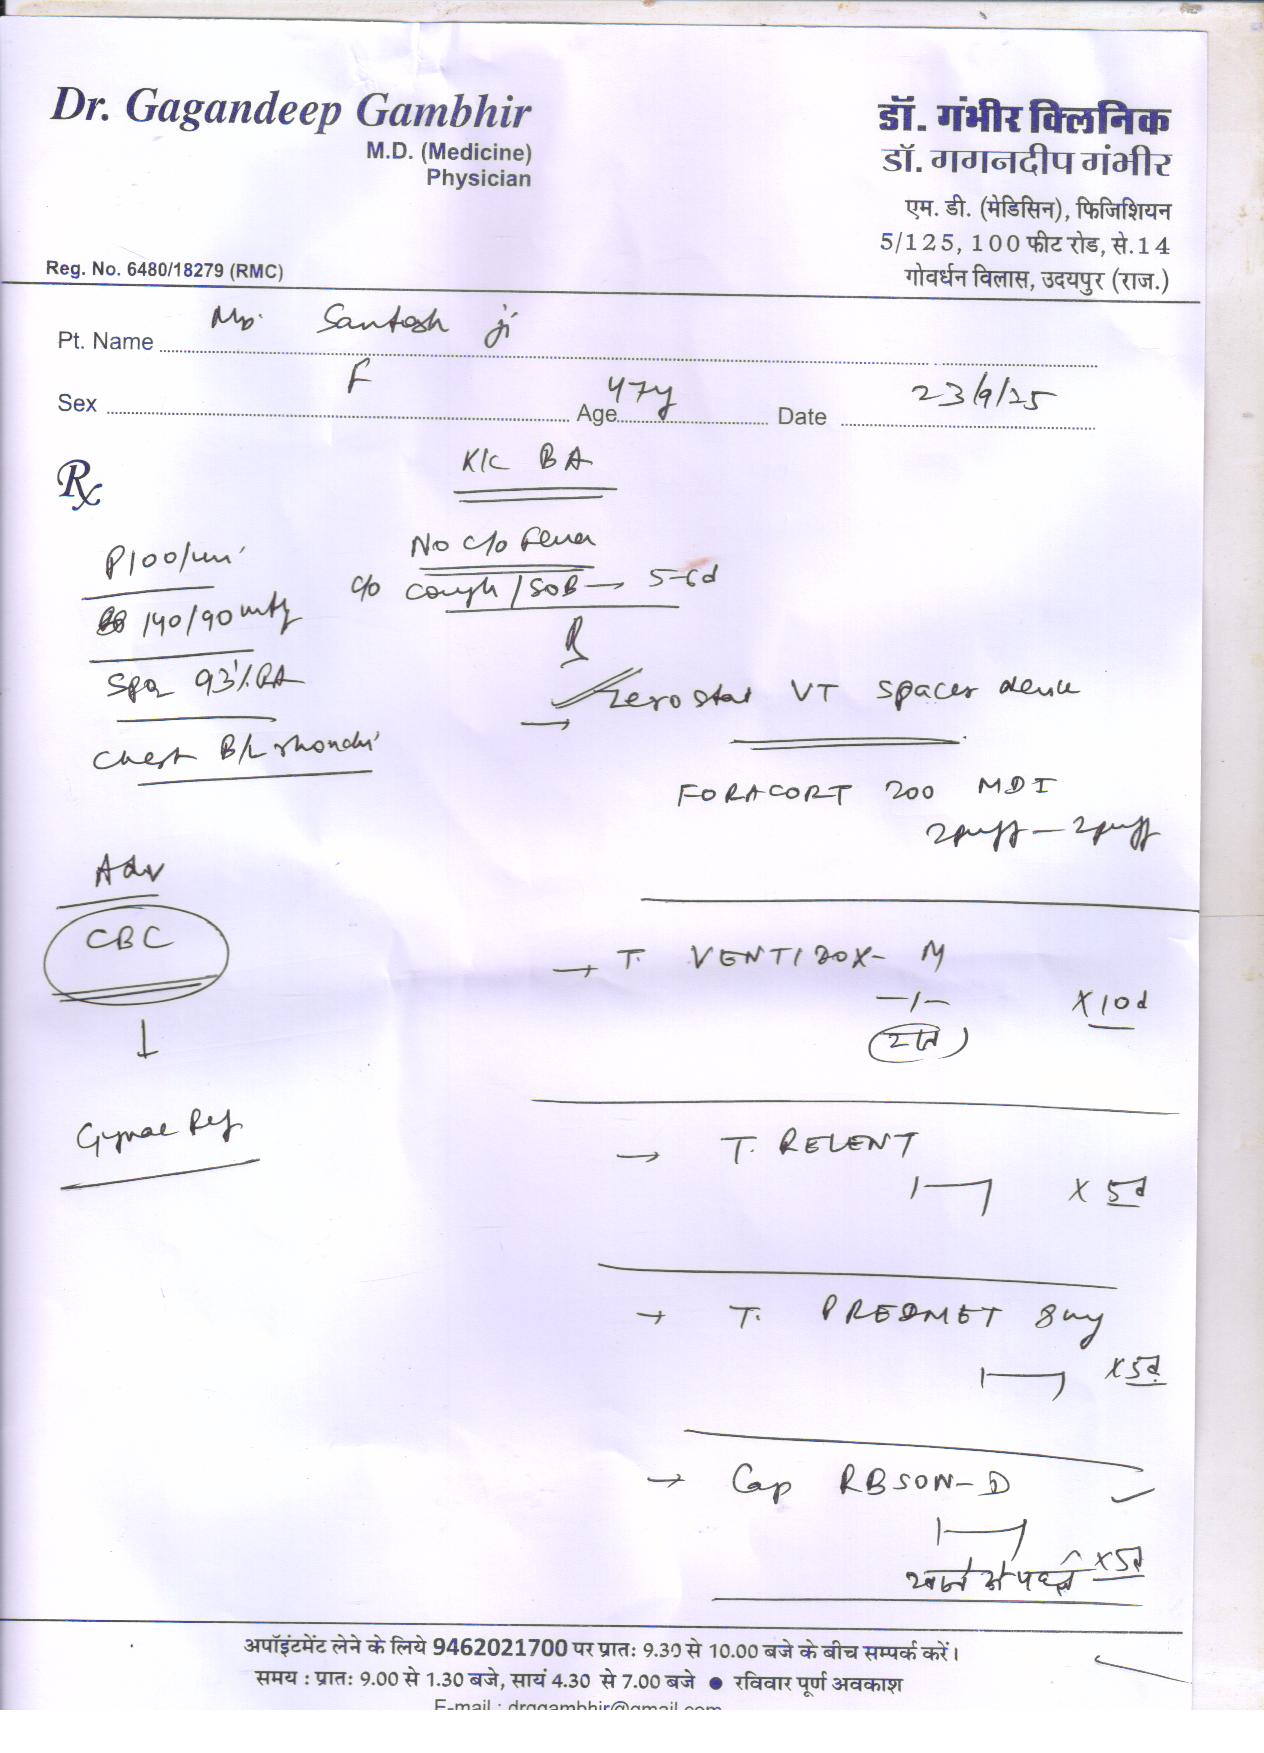 Dr. Gagandeep Gambhir
M.D. (Medicine)
Physician
Reg. No. 6480/18279 (RMC)
डॉ. गंभीर क्लिनिक
डॉ. गगनदीप गंभीर
एम. डी. (मेडिसिन), फिजिशियन
5/125, 100 फीट रोड, से.14
गोवर्धन विलास, उदयपुर (राज.)
Pt. Name Santosh ji
Sex F Age 47y Date 23/9/25
Rx
K/C BA
No c/o Fever
c/o Cough / SOB → 5-6d
P 100/min
140/90 mmHg
SpO2 93% RA
Chest B/L rhonchi
Adv
CBC
↓
Gynae Ref
→ Zerostat VT spacer device
FORACORT 200 MDI
2puff — 2puff
→ T. VENTIDOX-M
—/— X 10d
(रात)
→ T. RELENT
1—1 X 5d
→ T. PREDMET 8mg
1—1 X 5d
→ Cap RBSON-D
1—1
खाने से पहले X 5d
अपॉइंटमेंट लेने के लिये 9462021700 पर प्रातः 9.30 से 10.00 बजे के बीच सम्पर्क करें।
समय : प्रातः 9.00 से 1.30 बजे, सायं 4.30 से 7.00 बजे ● रविवार पूर्ण अवकाश
E-mail : drggambhir@gmail.com